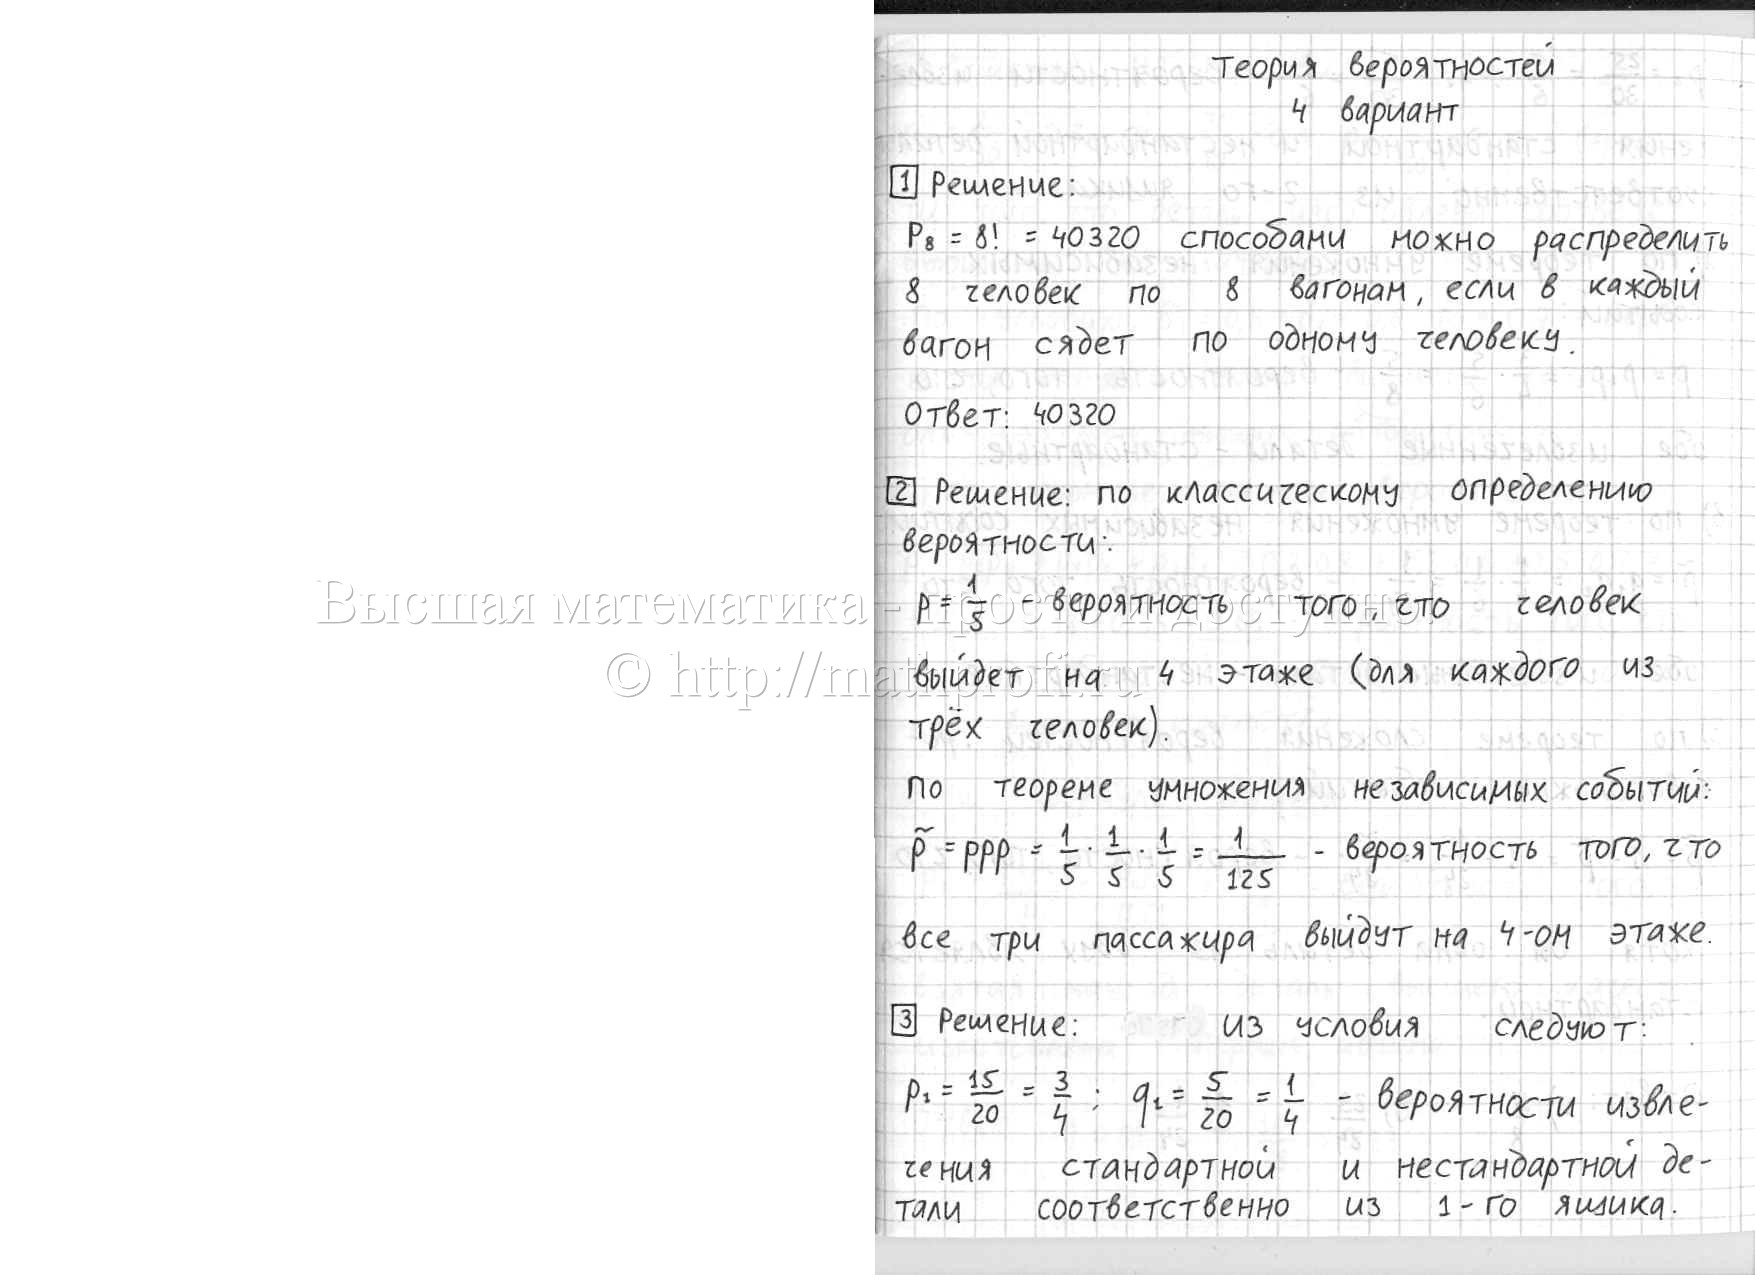 Теория вероятностей
4 вариант
1 Решение:
P₈ = 8! = 40320 способами можно распределить
8 человек по 8 вагонам, если в каждый
вагон сядет по одному человеку.
Ответ: 40320
2 Решение: по классическому определению
вероятности:
p = 1/5 - вероятность того, что человек
Высшая математика - просто и доступно!
выйдет на 4 этаже (для каждого из
© http://mathprofi.ru
трёх человек).
По теореме умножения независимых событий:
p̃ = ppp = 1/5 · 1/5 · 1/5 = 1/125 - вероятность того, что
все три пассажира выйдут на 4-ом этаже.
3 Решение: из условия следуют:
p₁ = 15/20 = 3/4; q₁ = 5/20 = 1/4 - вероятности извле-
чения стандартной и нестандартной де-
тали соответственно из 1-го ящика.